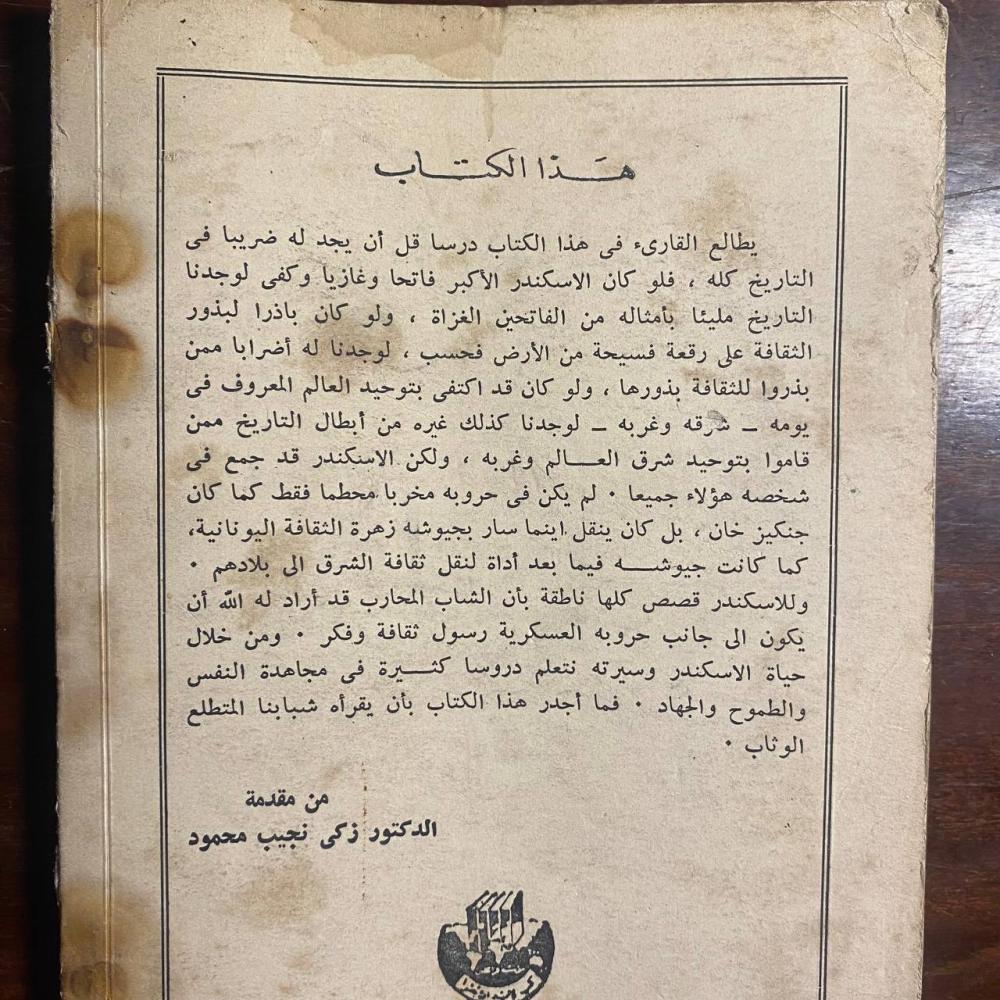 هَـذا الكـتـاب
يطالع القارىء فى هذا الكتاب درسا قل أن يجد له ضريبا فى
التاريخ كله ، فلو كان الاسكندر الأكبر فاتحا وغازيا وكفى لوجدنا
التاريخ مليئا بأمثاله من الفاتحين الغزاة ، ولو كان باذرا لبذور
الثقافة على رقعة فسيحة من الأرض فحسب ، لوجدنا له أضرابا ممن
بذروا للثقافة بذورها ، ولو كان قد اكتفى بتوحيد العالم المعروف فى
يومه ــ شرقه وغربه ــ لوجدنا كذلك غيره من أبطال التاريخ ممن
قاموا بتوحيد شرق العـــالم وغربه ، ولكن الاسكندر قد جمع فى
شخصه هؤلاء جميعا ٠ لم يكن فى حروبه مخربا محطما فقط كما كان
جنكيز خان ، بل كان ينقل اينما سار بجيوشه زهرة الثقافة اليونانية،
كما كانت جيوشـــه فيما بعد أداة لنقل ثقافة الشرق الى بلادهم ٠
وللاسكندر قصص كلها ناطقة بأن الشاب المحارب قد أراد له الله أن
يكون الى جانب حروبه العسكرية رسول ثقافة وفكر ٠ ومن خلال
حياة الاسكندر وسيرته نتعلم دروسا كثـــيرة فى مجاهدة النفس
والطموح والجهاد ٠ فما أجدر هذا الكتاب بأن يقرأه شبابنا المتطلع
الوثاب ٠
من مقدمة
الدكتور زكى نجيب محمود